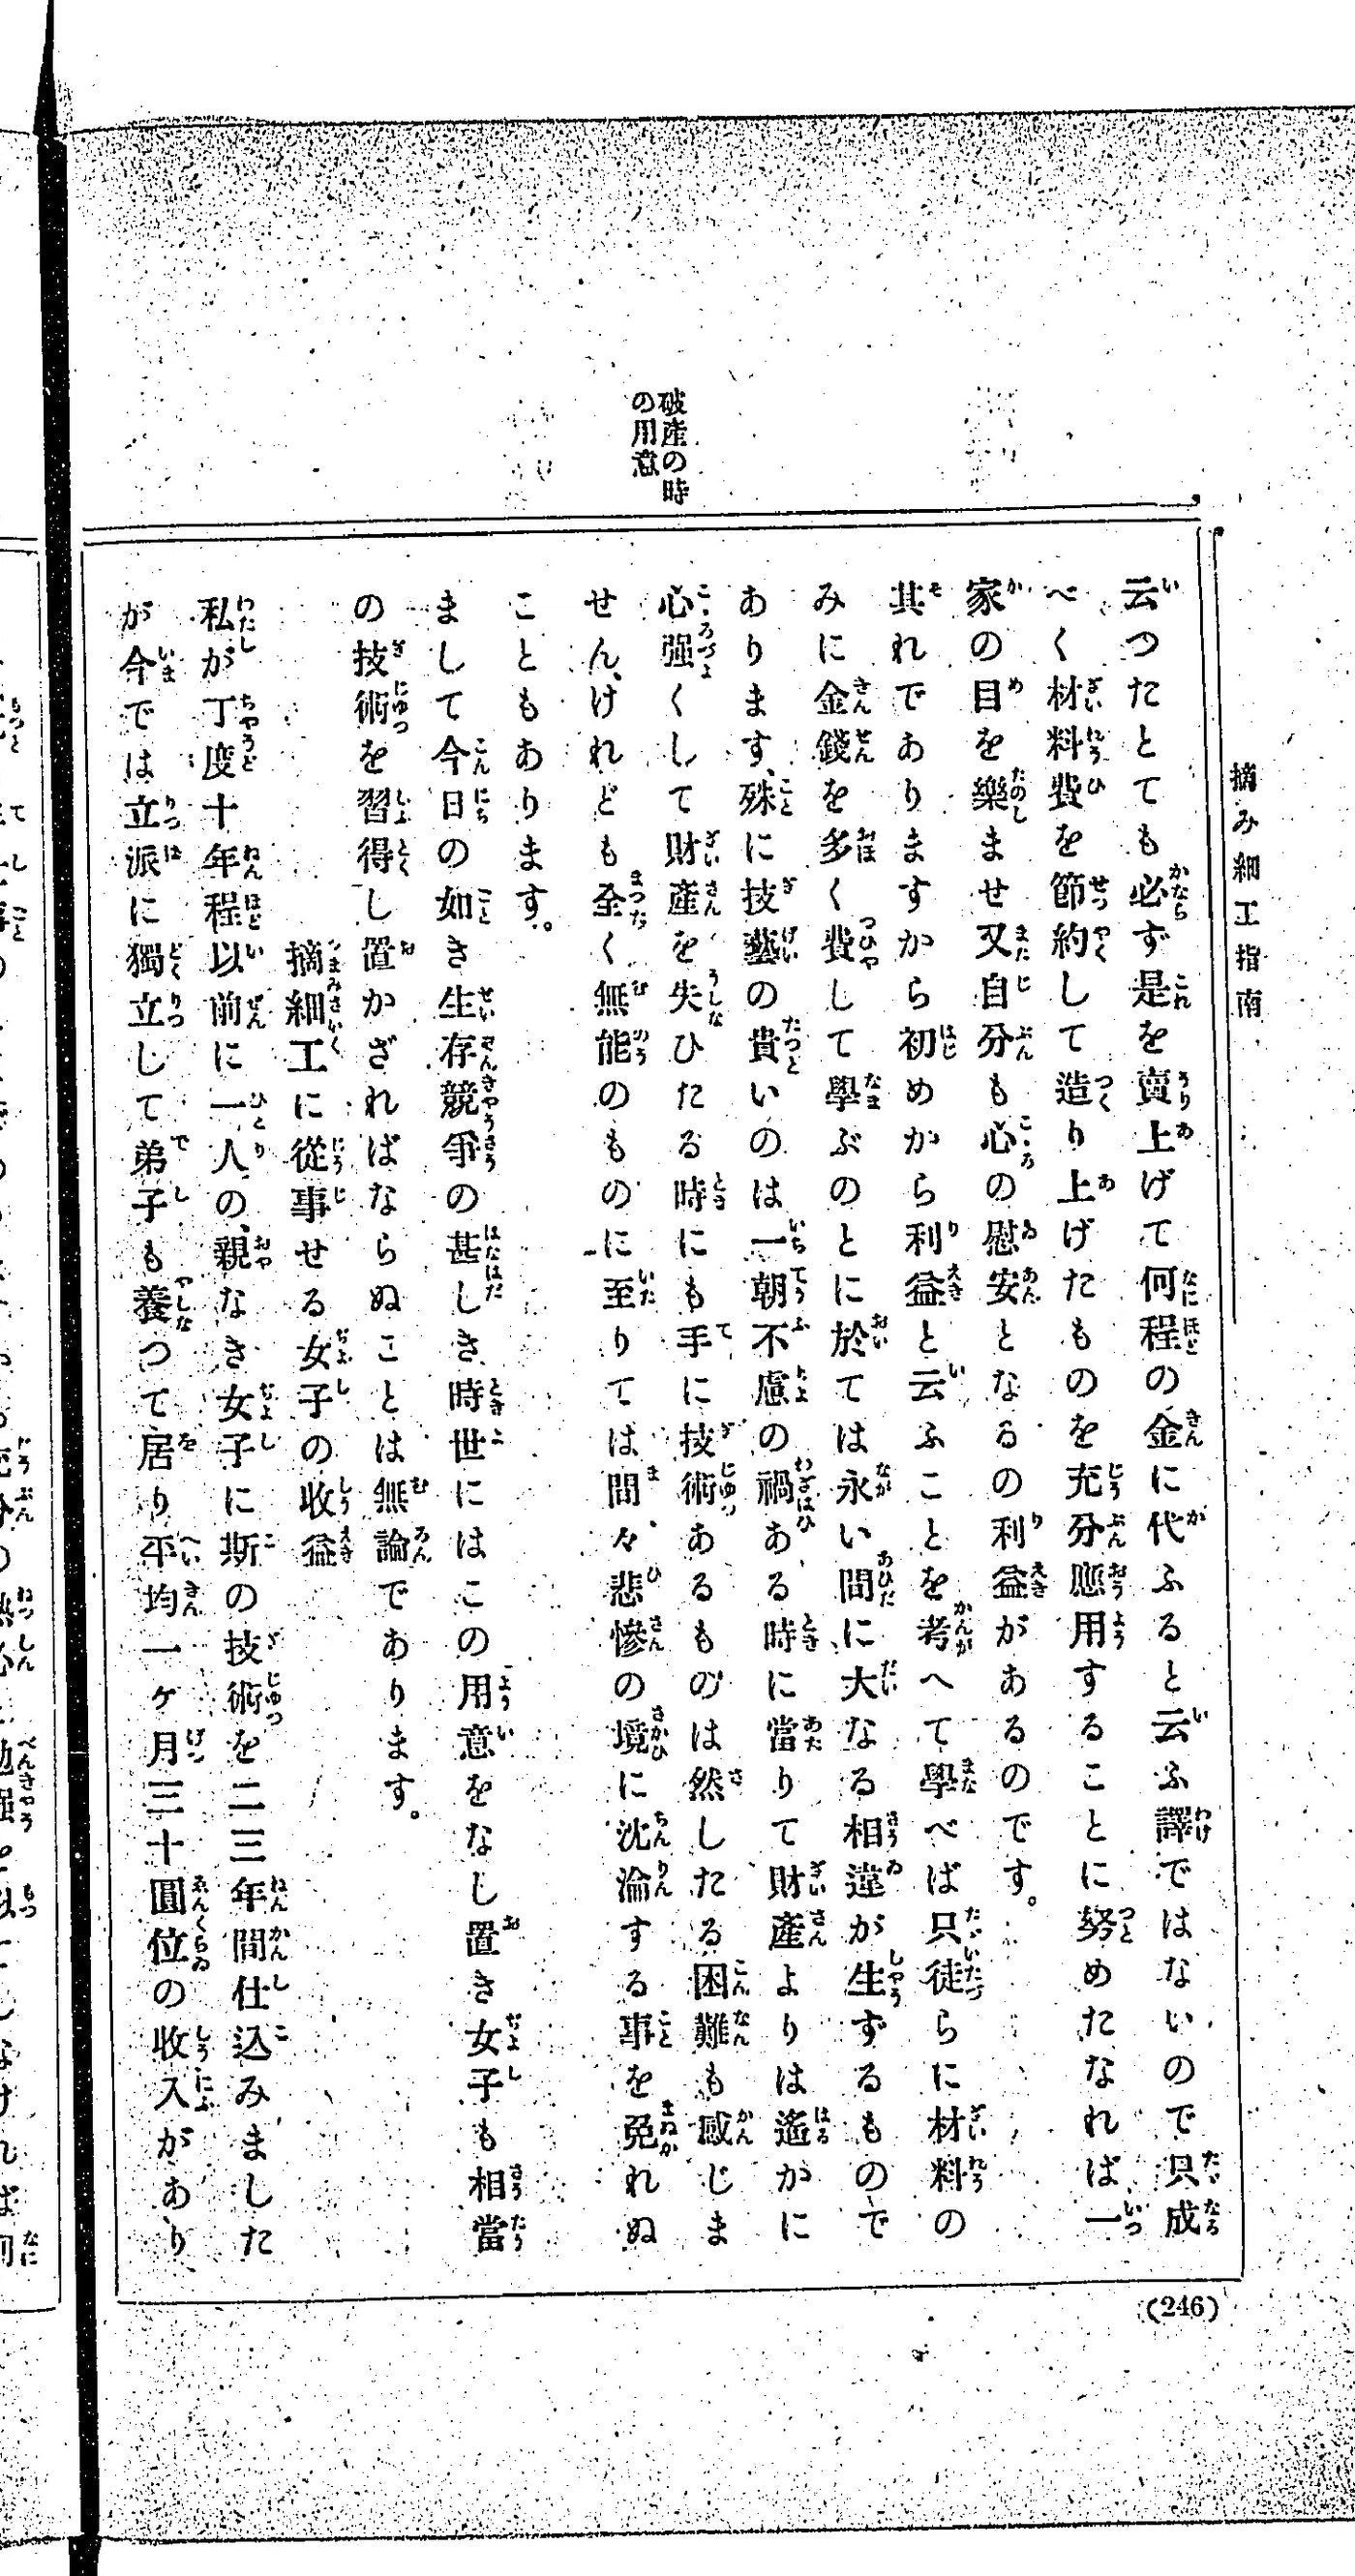 摘み細工指南
(246)
破産の時
の用意
云つたとても必ず是を賣上げて何程の金に代ふると云ふ譯ではないので只成
べく材料費を節約して造り上げたものを充分應用することに努めたなれば一
家の目を樂ませ又自分も心の慰安となるの利益があるのです。
其れでありますから初めから利益と云ふことを考へて學べば只徒らに材料の
みに金錢を多く費して學ぶのとに於ては永い間に大なる相違が生ずるもので
あります、殊に技藝の貴いのは一朝不慮の禍ある時に當りて財産よりは遙かに
心强くして財産を失ひたる時にも手に技術あるものは然したる困難も感じま
せん、けれども全く無能のものに至りては間々悲慘の境に沈淪する事を免れぬ
こともあります。
まして今日の如き生存競爭の甚しき時世にはこの用意をなし置き女子も相當
の技術を習得し置かざればならぬことは無論であります。
摘細工に從事せる女子の收益
私が丁度十年程以前に一人の、親なき女子に斯の技術を二三年間仕込みました
が今では立派に獨立して弟子も養つて居り平均一ヶ月三十圓位の收入があり